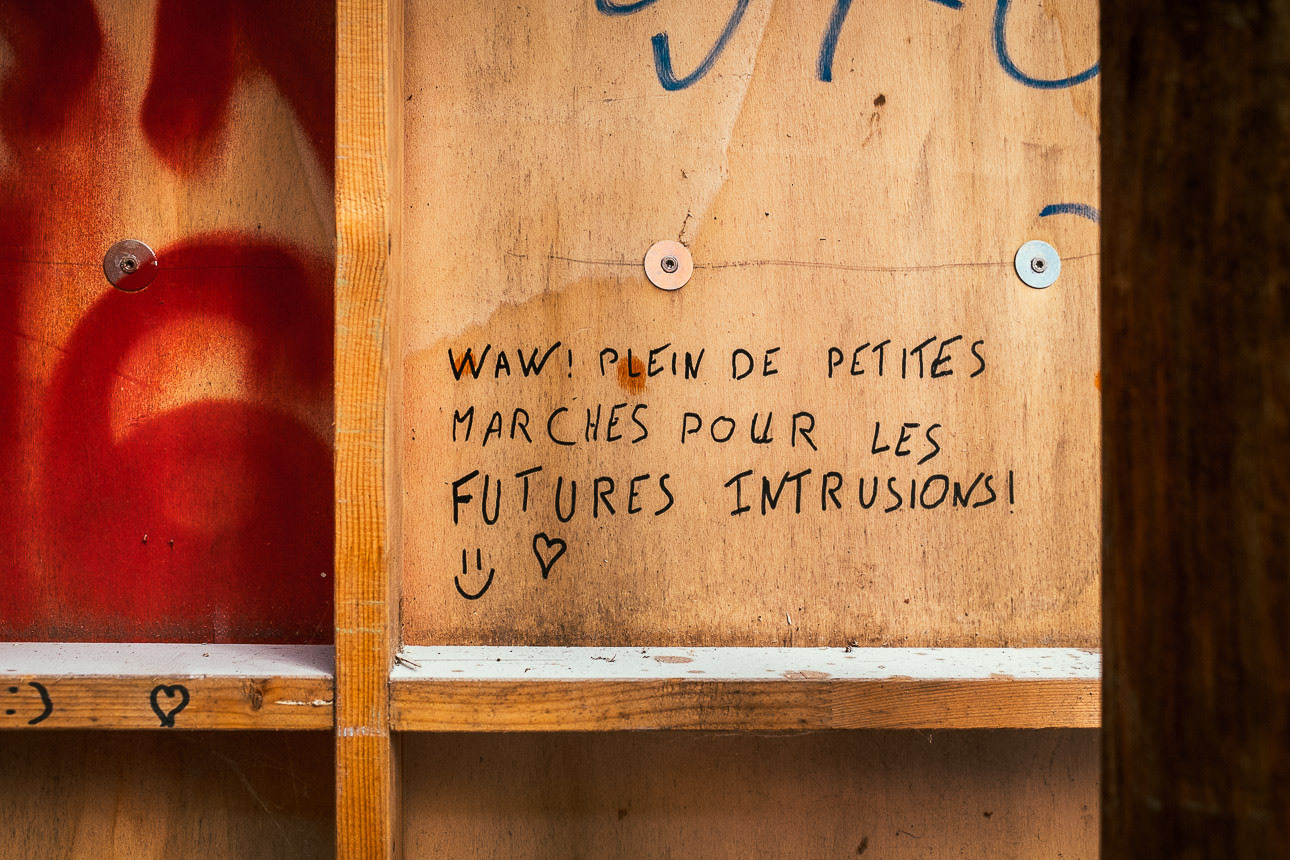 WAW! PLEIN DE PETITES
MARCHES POUR LES
FUTURES INTRUSIONS!
:)